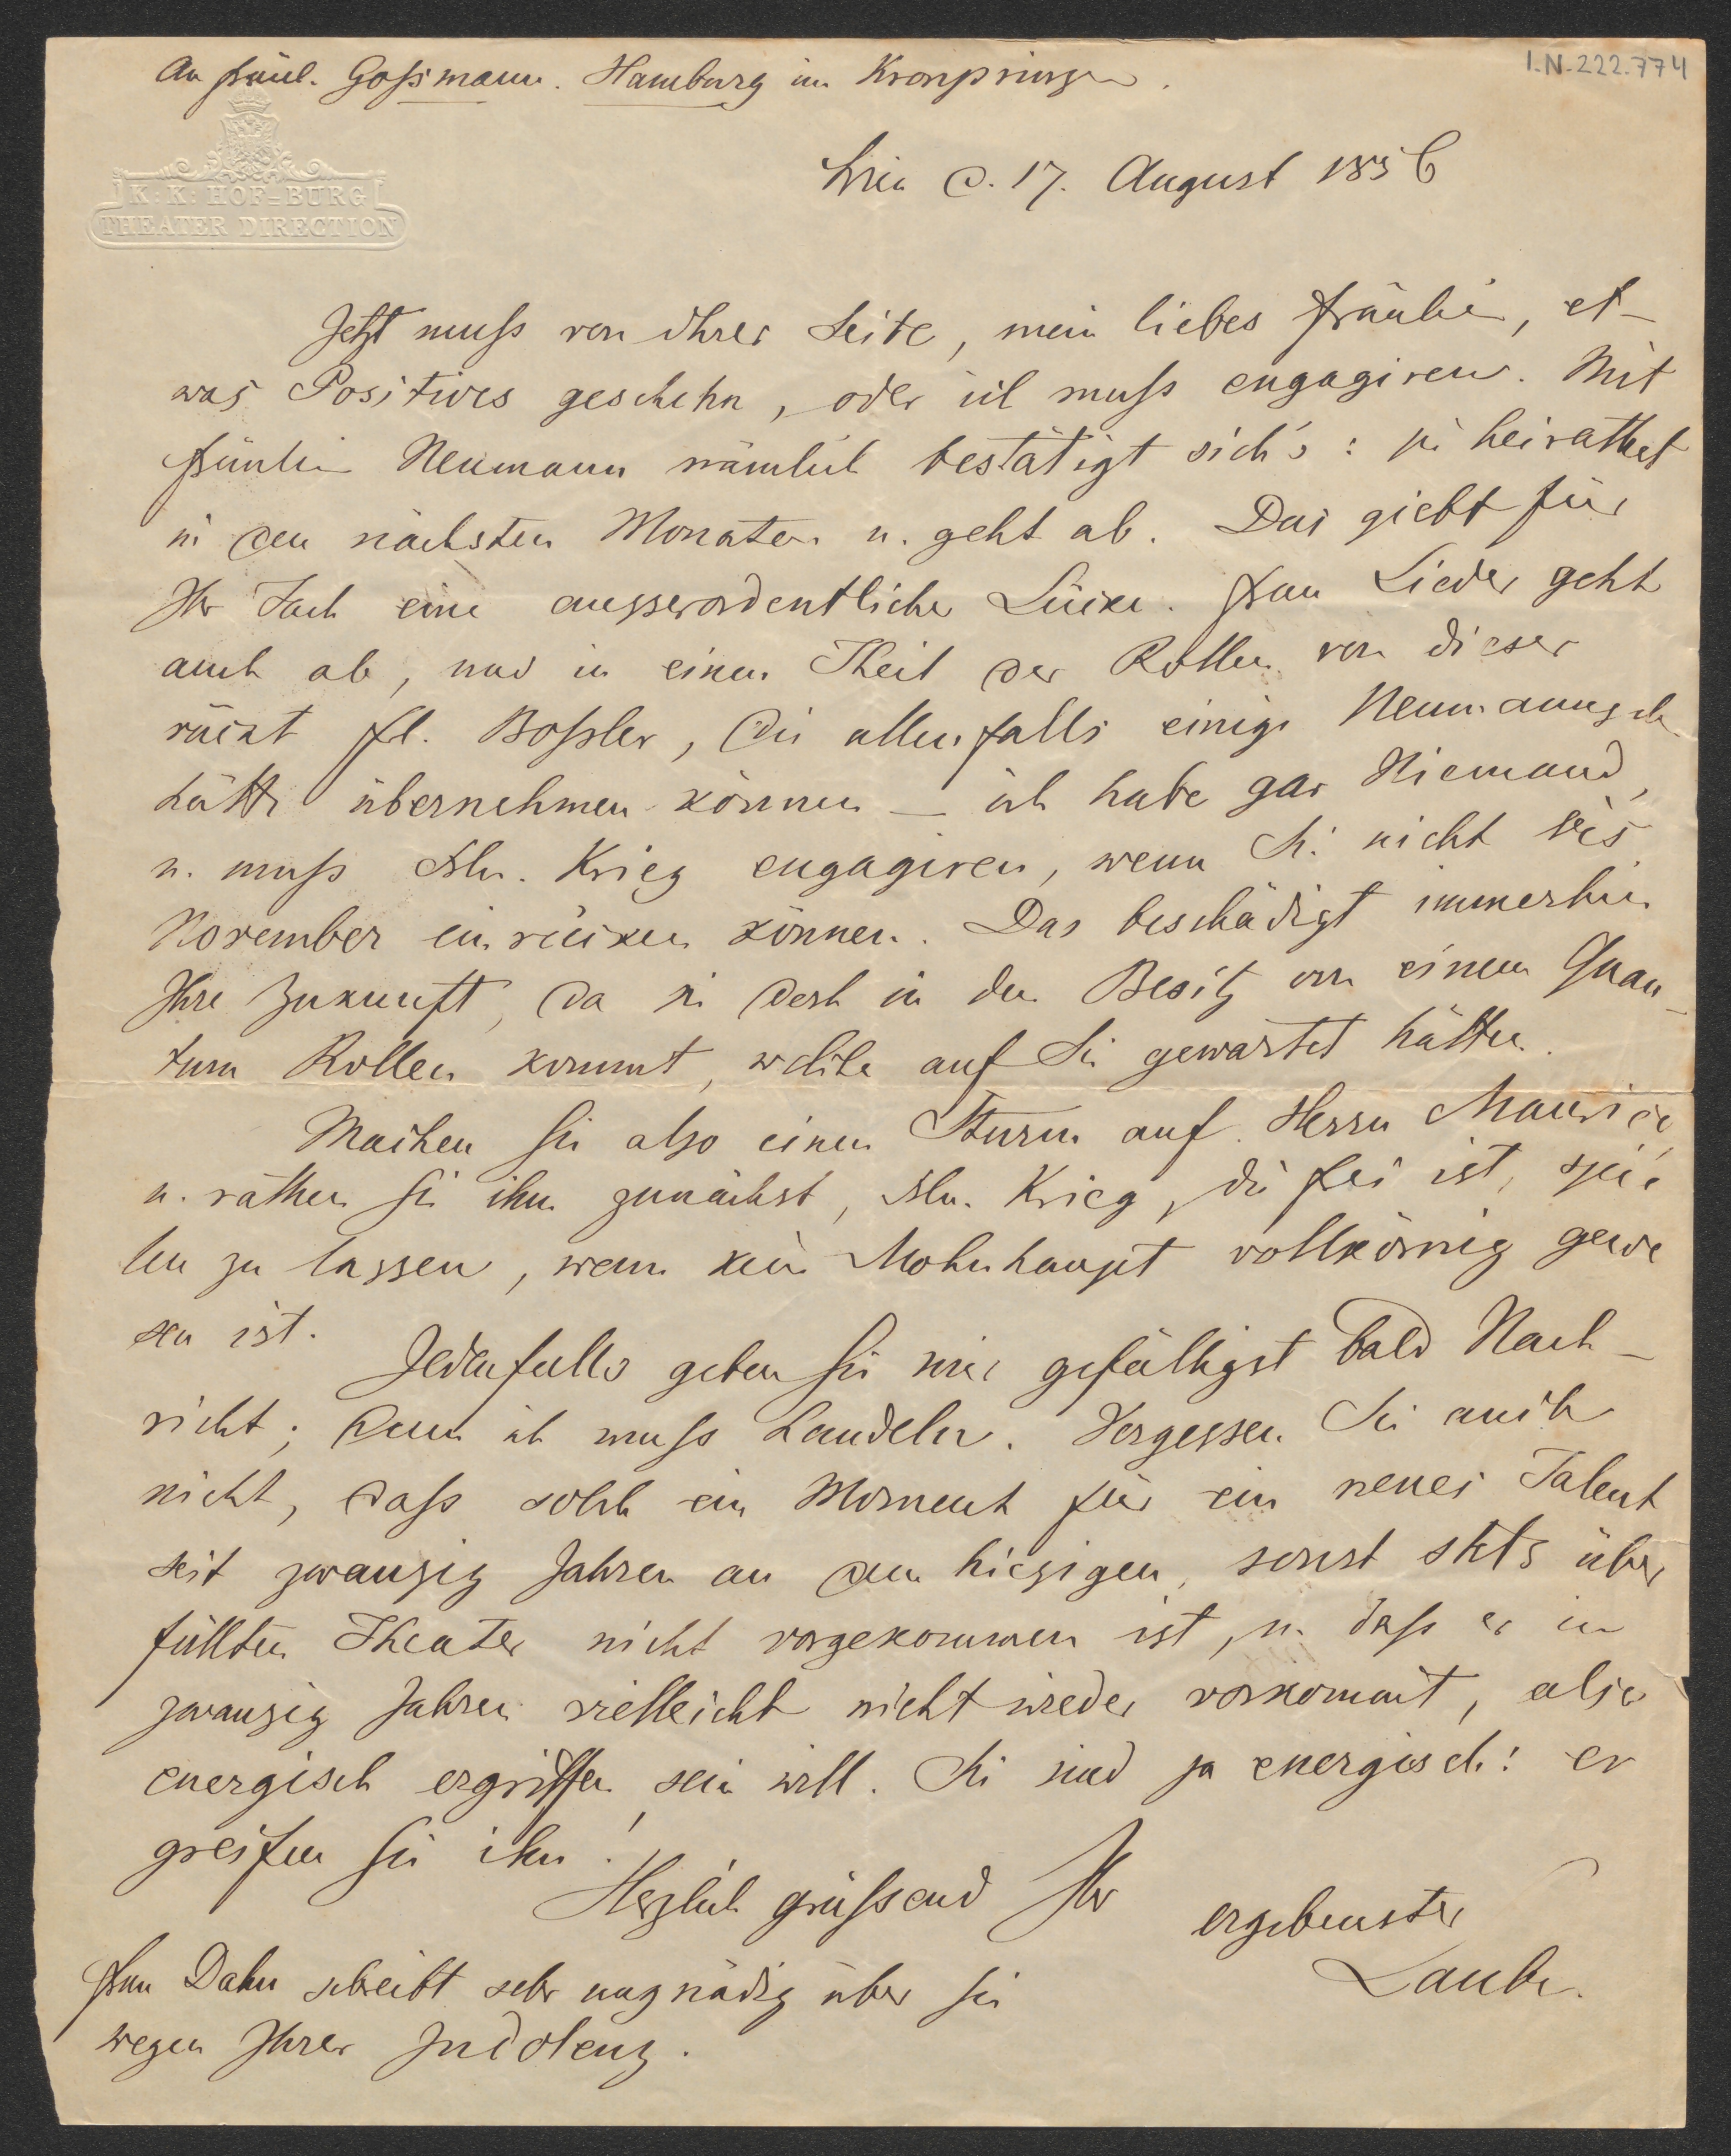 I.N. 222.774
An Fräul. Goßmann. Hamburg im Kronprinzen.
K: K: HOF=BURG
THEATER DIRECTION
Wien d. 17. August 1856
Jetzt muß von Ihrer Seite, mein liebes Fräulein, et-
was Positives geschehn, oder ich muß engagiren. Mit
Fräulein Neumann nämlich bestätigt sich's: sie heirathet
in den nächsten Monaten u. geht ab. Das giebt für
Ihr Fach eine ausserordentliche Lücke. Frau Lieder geht
auch ab, und in einen Theil der Rollen von dieser
rückt Frl. Boßler, die allenfalls einige Neumannsche
hätte übernehmen können – ich habe gar Niemand,
u. muß Aln. Krieg engagiren, wenn Sie nicht bis
November einrücken können. Das beschädigt immerhin
Ihre Zukunft, da sie doch in den Besitz von einem Quan-
tum Rollen kommt, welche auf Sie gewartet hätten.
Machen Sie also einen Sturm auf Herrn Maurice,
u. rathen Sie ihm zunächst, Aln. Krieg, die frei ist, spie
len zu lassen, wenn kein Mohnhaupt vollkörnig gewe
sen ist.
Jedenfalls geben Sie mir gefälligst bald Nach-
richt; denn ich muß handeln. Vergessen Sie auch
nicht, daß solch ein Moment für ein neues Talent
seit zwanzig Jahren an dem hiesigen, sonst stets über
füllten Theater nicht vorgekommen ist, u. daß er in
zwanzig Jahren vielleicht nicht wieder vorkommt, also
energisch ergriffen sein will. Sie sind ja energisch: er
greifen Sie ihn!
Herzlich grüßend Ihr
ergebenster
Laube.
Frau Dahn schreibt sehr ungnädig über Sie
wegen Ihrer Indolenz.